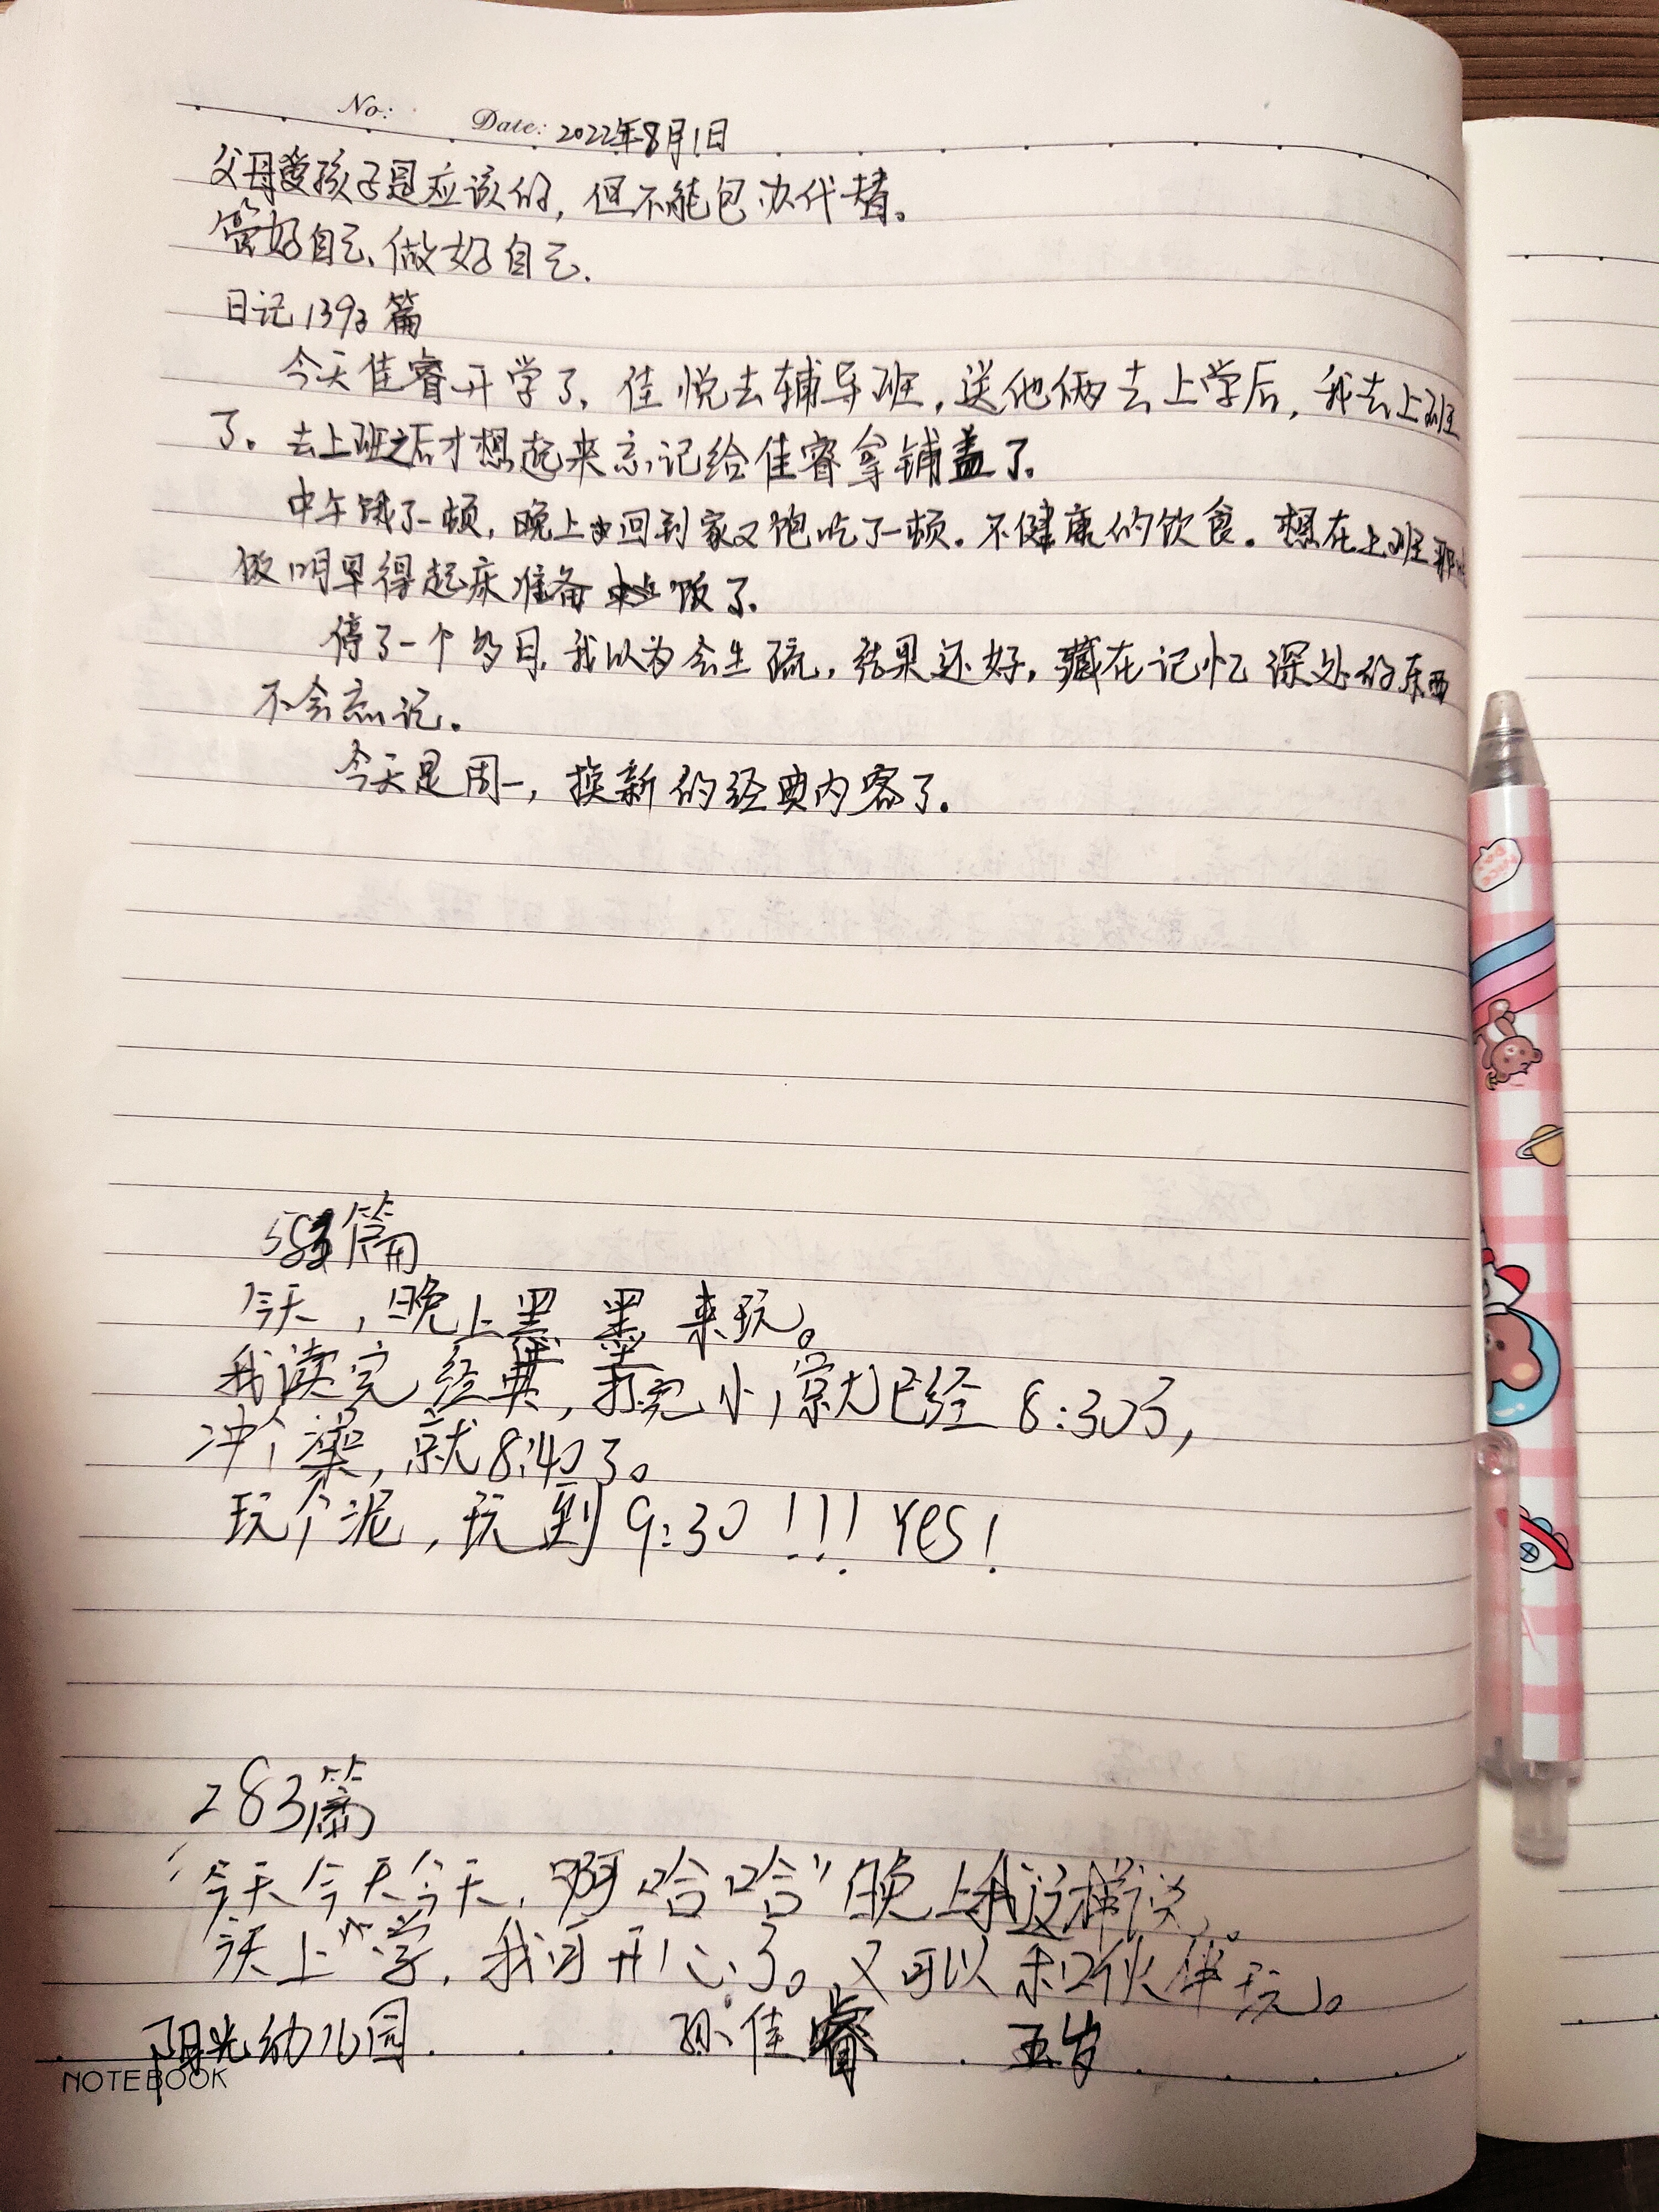 No: Date: 2022年8月1日
父母爱孩子是应该的，但不能包办代替。
管好自己、做好自己.
日记1393篇
今天佳睿开学了，佳悦去辅导班，送他俩去上学后，我去上班
了。去上班之后才想起来忘记给佳睿拿铺盖了。
中午饿了一顿，晚上回到家又饱吃了一顿。不健康的饮食。想在上班那
做明早得起床准备饭了.
停了一个多月，我以为会生疏，结果还好，藏在记忆深处的东西
不会忘记。
今天是周一，换新的经典内容了.
583篇
今天，晚上墨墨来玩。
我读完经典，打完小，就已经8:30了，
冲个澡，就8:40了。
玩个泥，玩到9:30！！！Yes！
283篇
“今天今天今天，啊哈哈”晚上我这样说。
今天上学，我可开心了。又可以和伙伴玩。
阳光幼儿园 孙佳睿 五岁
NOTEBOOK